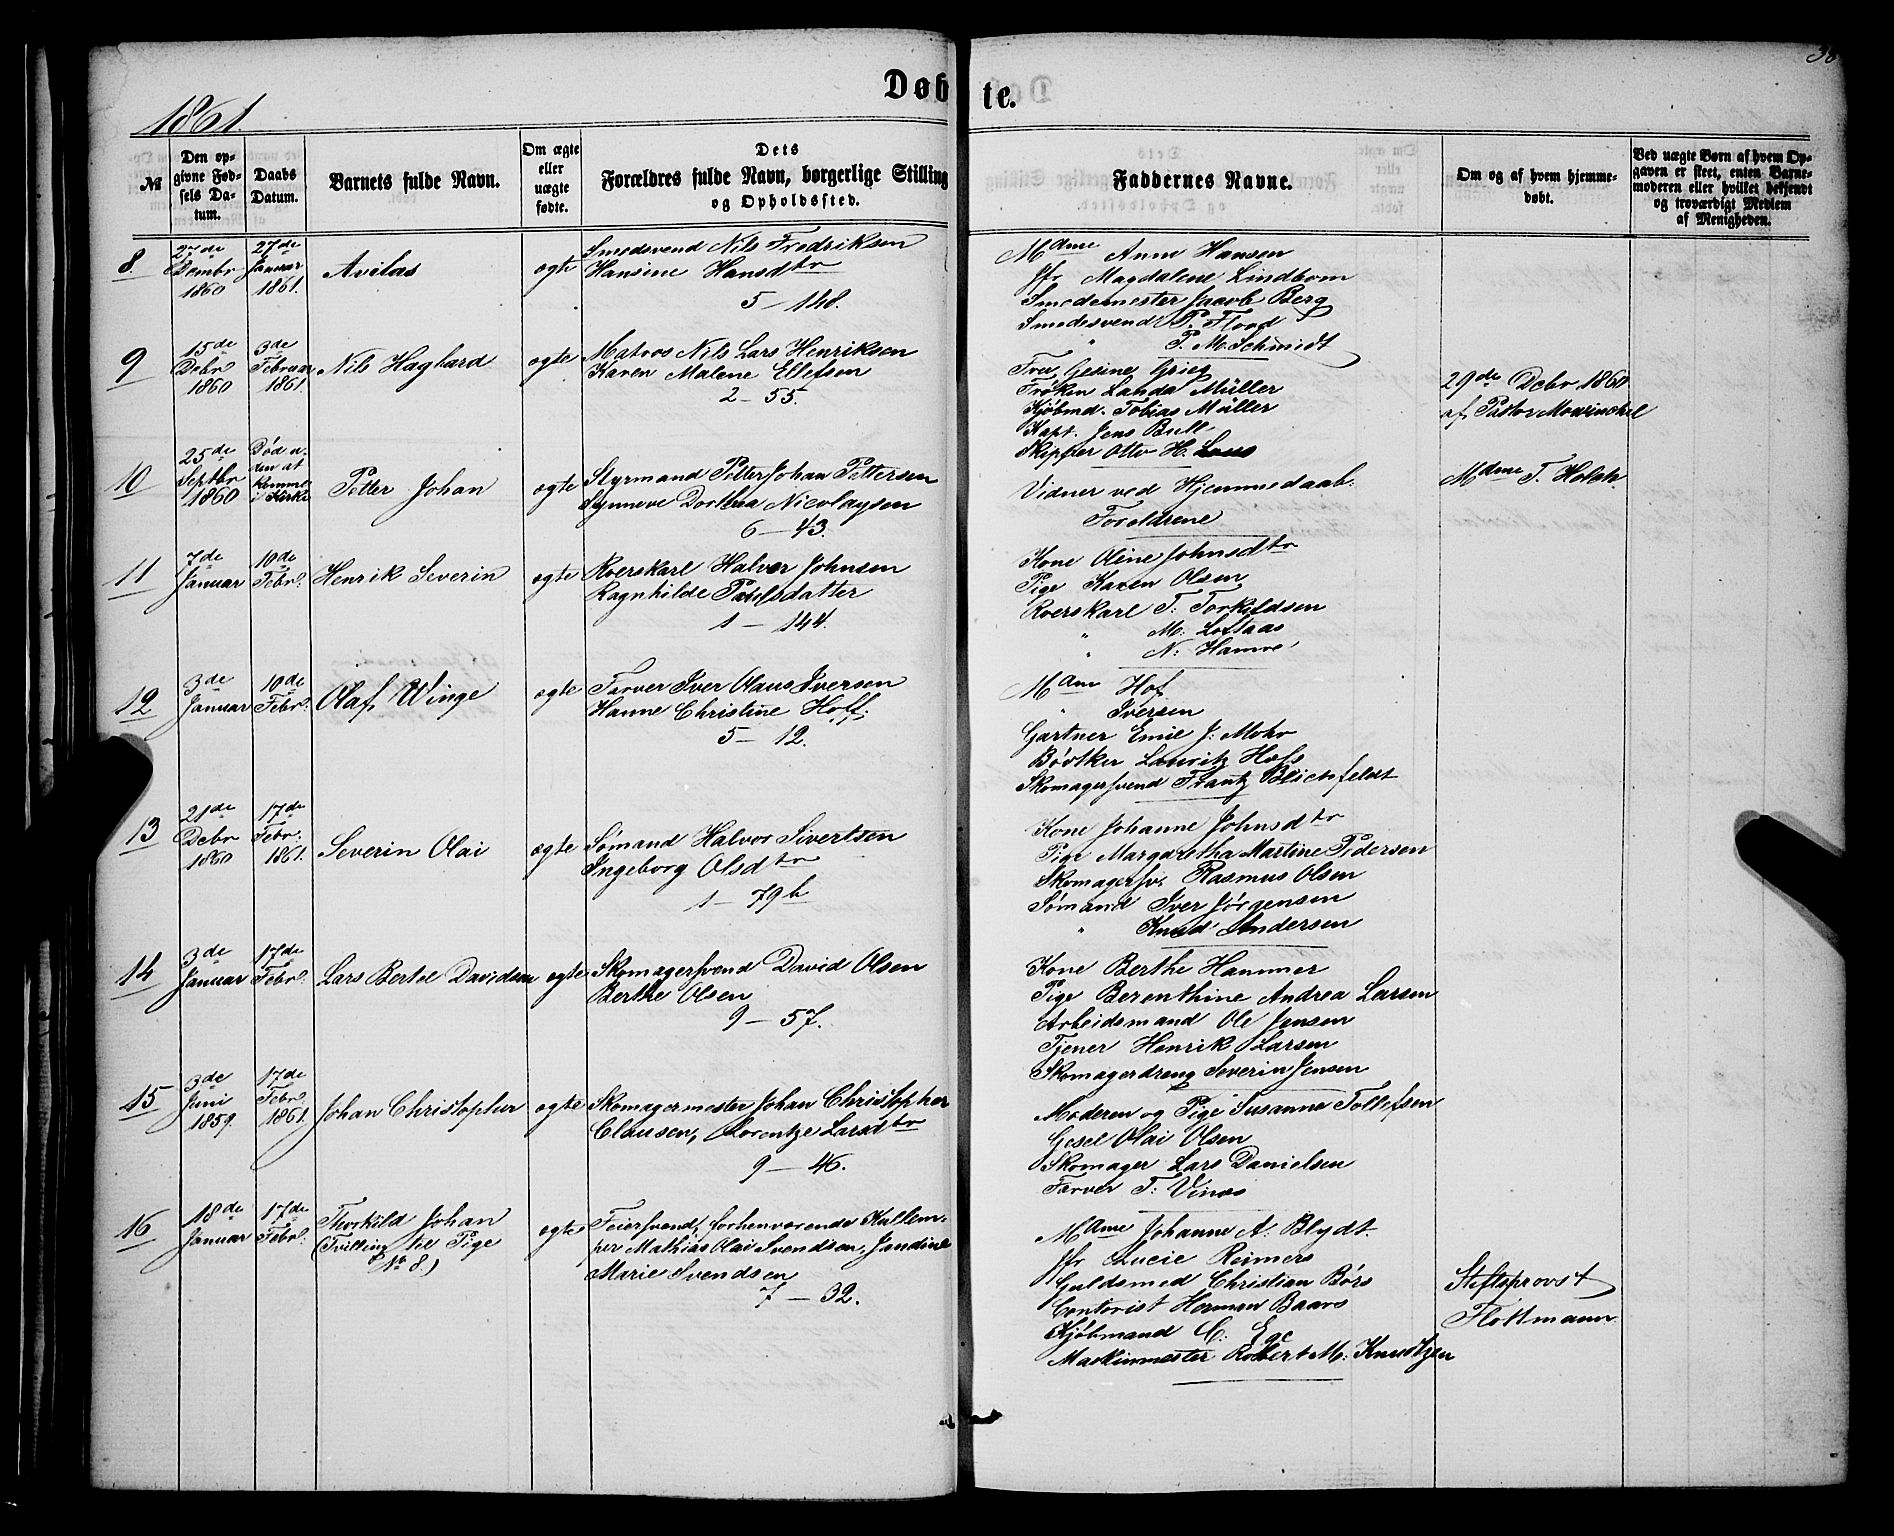 38
1861.
Døbte.
№
Den opgivne Fødsels Datum.
Daabs Datum.
Barnets fulde Navn.
Om ægte eller uægte fødte.
Dets Forældres fulde Navn, borgerlige Stilling og Opholdssted.
Faddernes Navne.
Om og af hvem hjemmedøbt.
Ved uægte Børn af hvem Opgaven er skeet, enten Barnemoderen eller hvilket bekjendt og troværdigt Medlem af Menigheden.
8.
27de
1860
27de
Januar
1861.
Avilas
ægte
Smedsvend Nils Fredriksen
Hansine Hansdtr
5 – 148.
Mdme Anne Hansen
Jfr Magdalene Lindbom
Smedemester Jacob Berg
Smedesvend P. Flood
" P. M. Schmidt
9
15de
Debr
1860
3de
Februar
1861.
Nils Haghard
ægte
Matros Nils Lars Henriksen
Karen Malene Ellefsen
2 – 55.
Fru Gesine Grieg
Frøken Landa Müller
Kjøbmd. Tobias Müller
Kapt. Jens Bull
Skipper Otto H.
29de Debr. 1860.
af Pastor Mowinckel
10
25de
Septbr
1860
Død uden at komme i Kirke
Petter Johan
ægte
Styrmand Petter Johan Pettersen
Synneve Dorthea Nicolaysen
6 – 43.
Vidner ved Hjemmedaab:
Forældrene
Mdme T. Holch.
11
7de
Januar
10de
Febr.
Henrik Severin
ægte
Roerskarl Halvor Johnsen
Ragnhilde Poulsdatter
1 – 144.
Kone Oline Johnsdtr
Pige Karen Olsen
Roerskarl T: Torkildsen
" M: Loftaas
" N: Hamre
12
3de
Januar
10de
Febr.
Olaf Winge
ægte
Farver Iver Olaus Iversen
Hanne Christine Hoff.
5 – 12.
Mdme Hof
" Iversen
Gartner Emil J: Mohr
Bødker Lauritz Hofs
Skomagersvend Frantz Blichfeldt
13
21de
Debr
1860
17de
Febr.
1861.
Severin Olai
ægte
Sømand Halvor Sivertsen
Ingeborg Olsdtr
1 – 79b
Kone Johanne Johnsdtr
Pige Margaretha Martine Pedersen
Skomagersv. Rasmus Olsen
Sømand Iver Jørgensen
" Knud Andersen
14
3de
Januar
17de
Febr.
Lars Bertel Davidsen
ægte
Skomagersvend David Olsen
Berthe Olsen
9 – 57.
Kone Berthe Hammer
Pige Berenthine Andrea Larsen
Arbeidsmand Ole Jensen
Tjener Henrik Larsen
Skomagerdreng Severin Jensen
15
3de
Juni
1859.
17de
Febr.
1861.
Johan Christopher
ægte
Skomagermester Johan Christopher
Clausen, Lorentze Larsdtr
9 – 46.
Moderen og Pige Susanne Tollefsen
Gesel Olai Olsen
Skomager Lars Danielsen
Farver T: Vinæs
16
18de
Januar
17de
Febr.
Thorkild Johan
(Tvilling til Pige
№ 8)
ægte
Feiersvend, forhenværende Kullemper Mathias Olai Svendsen, Jandine
Marie Svendsen
7 – 32.
Mdme Johanne A: Blydt.
Jfr Lucie Reimers
Guldsmed Christian Börs
Contorist Herman Baars
Kjøbmand C: Ege
Maskinmester Robert M: Knudtzen
Stiftsprovst
Flottmann